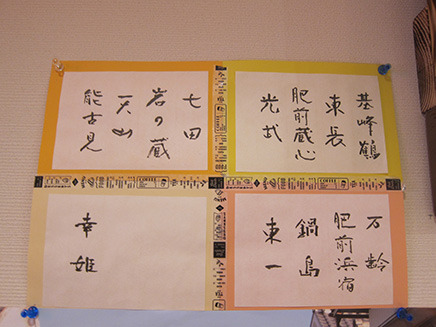 基峰鶴
東長
肥前蔵心
光武
七田
岩の蔵
天山
能古見
万齢
肥前浜宿
鍋島
東一
幸姫